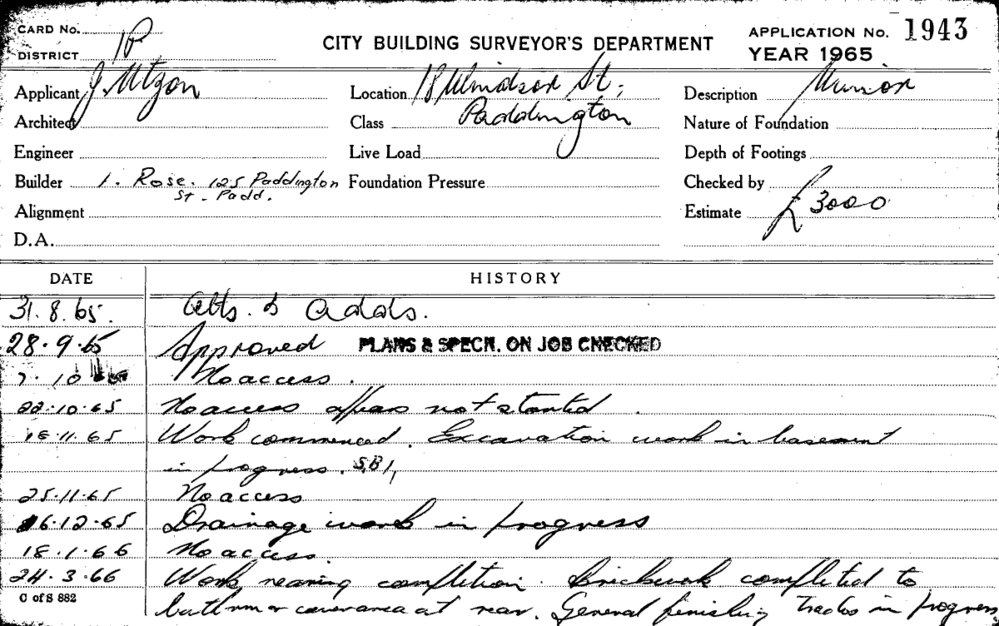 CARD No.
DISTRICT
CITY BUILDING SURVEYOR'S DEPARTMENT
APPLICATION No. 1943
YEAR 1965
Applicant J. Utzon
Location 18 Windsor St,
Paddington
Description
Architect
Class
Nature of Foundation
Engineer
Live Load
Depth of Footings
Builder 1. Rose. 125 Paddington
St. Padd.
Foundation Pressure
Checked by
Alignment
Estimate £3000
D.A.
DATE HISTORY
31.8.65. Alts. & adds.
28.9.65 Approved PLANS & SPECN. ON JOB CHECKED
7.10 No access.
22.10.65 No access appears not started.
16.11.65 Work commenced. Excavation work in basement
in progress.
25.11.65 No access
16.12.65 Drainage work in progress
18.1.66 No access
24.3.66 Work nearing completion. Brickwork completed to
C of S 882
area at rear. General finishing trades in progress